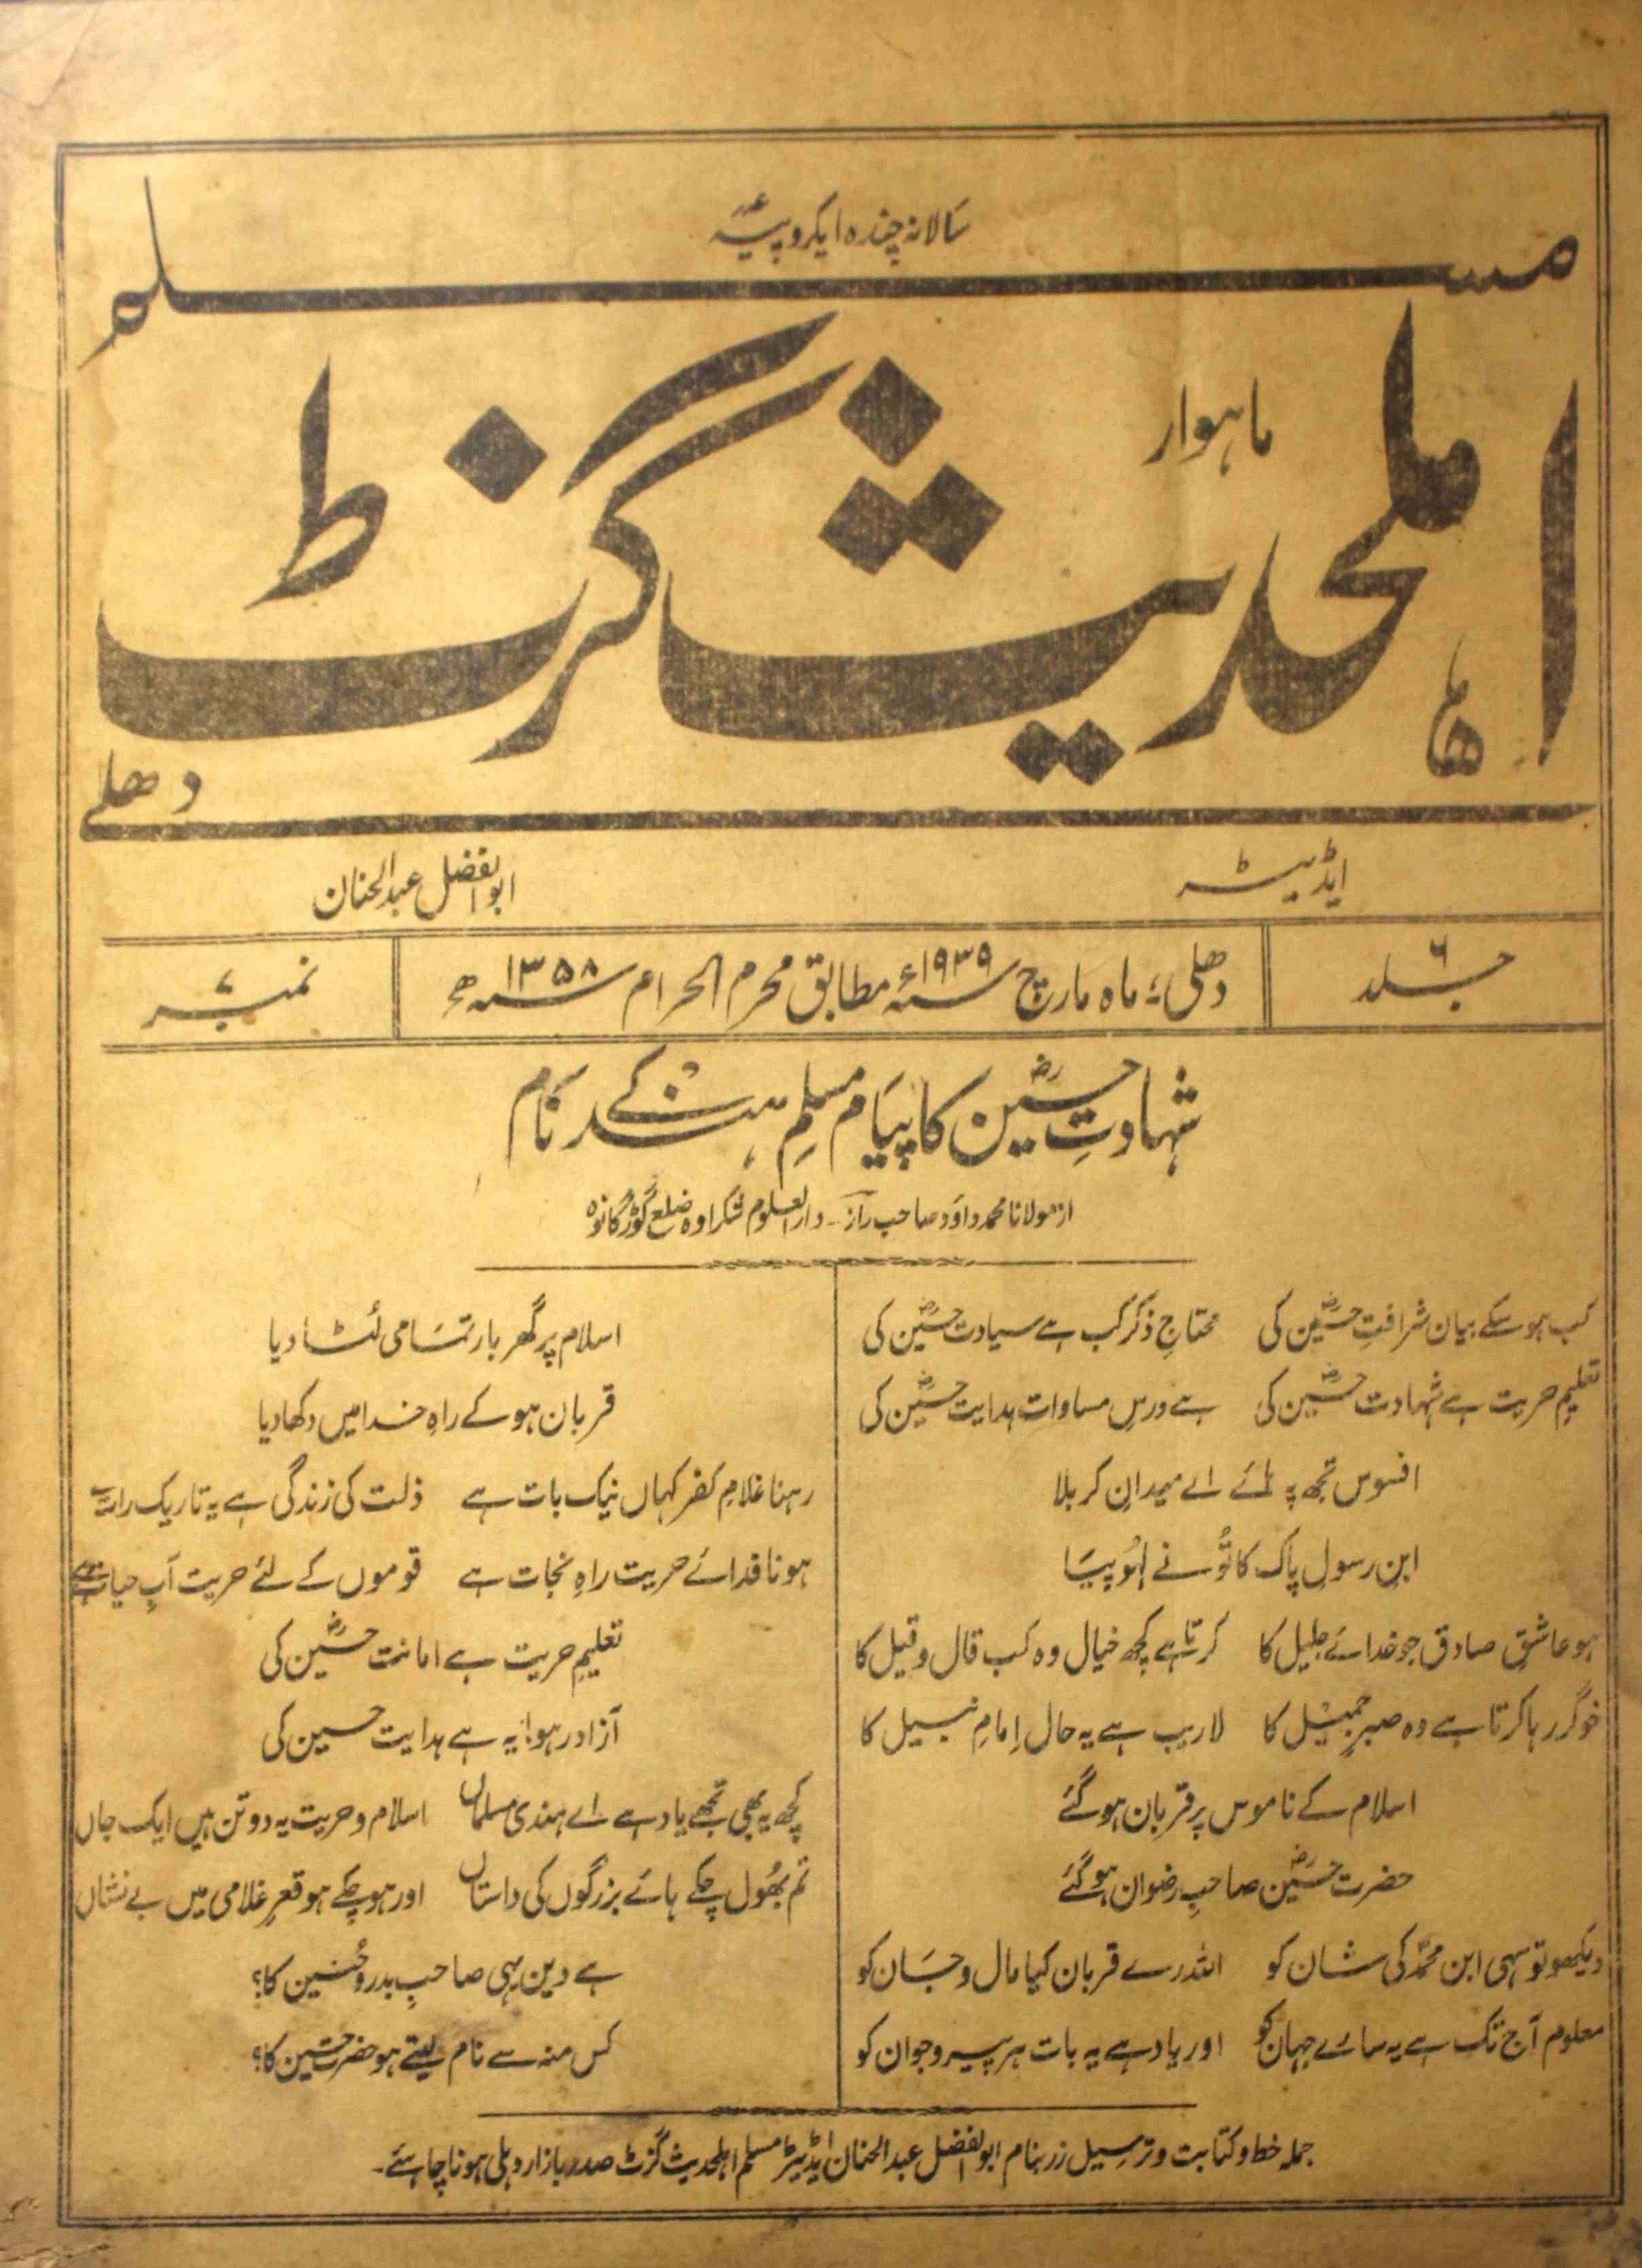 سالانہ چندہ ایکروپیہ
مسلم
اہلحدیث گزٹ
ماہوار
دھلی
ایڈیٹر
ابوالفضل عبدالحنان
جلد ۶
دھلی، ماہ مارچ سنہ ۱۹۳۹ء مطابق محرم الحرام سنہ ۱۳۵۸ھ
نمبر ۷
شہادتِ حسینؓ کا پیام مسلمِ ہند کے نام
از مولانا محمد داؤد صاحب رازؔ۔ دارالعلوم شکراوہ ضلع گوڑگانوہ
کب ہو سکے بیان شرافتِ حسینؓ کی محتاجِ ذکر کب ہے سیادت حسینؓ کی
تعلیمِ حریت ہے شہادت حسینؓ کی ہے درسِ مساوات ہدایت حسینؓ کی
افسوس تجھ پہ ہائے اے میدانِ کربلا
ابنِ رسولِ پاک کا تُو نے لہُو پیا
ہو عاشقِ صادق جو خدائے جلیل کا کرتا ہے کچھ خیال وہ کب قال و قیل کا
خوگر رہا کرتا ہے وہ صبرِ جمیل کا لاریب ہے یہ حال اِمامِ نبیل کا
اسلام کے ناموس پر قربان ہو گئے
حضرت حسینؓ صاحبِ رضوان ہو گئے
دیکھو تو سہی ابن محمدؐ کی شان کو اللہ رے قربان کیا مال و جان کو
معلوم آج تک ہے یہ سارے جہان کو اور یاد ہے یہ بات ہر پیر و جوان کو
اسلام پر گھر بار تمامی لُٹا دیا
قربان ہو کے راہِ خدا میں دکھا دیا
رہنا غلامِ کفر کہاں نیک بات ہے ذلت کی زندگی ہے یہ تاریک رات ہے
ہونا فدائے حریت راہِ نجات ہے قوموں کے لئے حریت آبِ حیات ہے
تعلیمِ حریت ہے امانت حسینؓ کی
آزاد رہو! یہ ہے ہدایت حسین کی
کچھ یہ بھی تجھے یاد ہے اے ہندی مسلماں اسلام و حریت یہ دو تن ہیں ایک جاں
تم بھُول چکے ہائے بزرگوں کی داستاں اور ہو چکے ہو قعرِ غلامی میں بے نشاں
ہے دین یہی صاحبِ بدر و حُنین کا؟
کس منہ سے نام لیتے ہو حضرت حسین کا؟
جملہ خط و کتابت و ترسیل زر بنام ابوالفضل عبدالحنان ایڈیٹر مسلم اہلحدیث گزٹ صدر بازار دہلی ہونا چاہئے۔